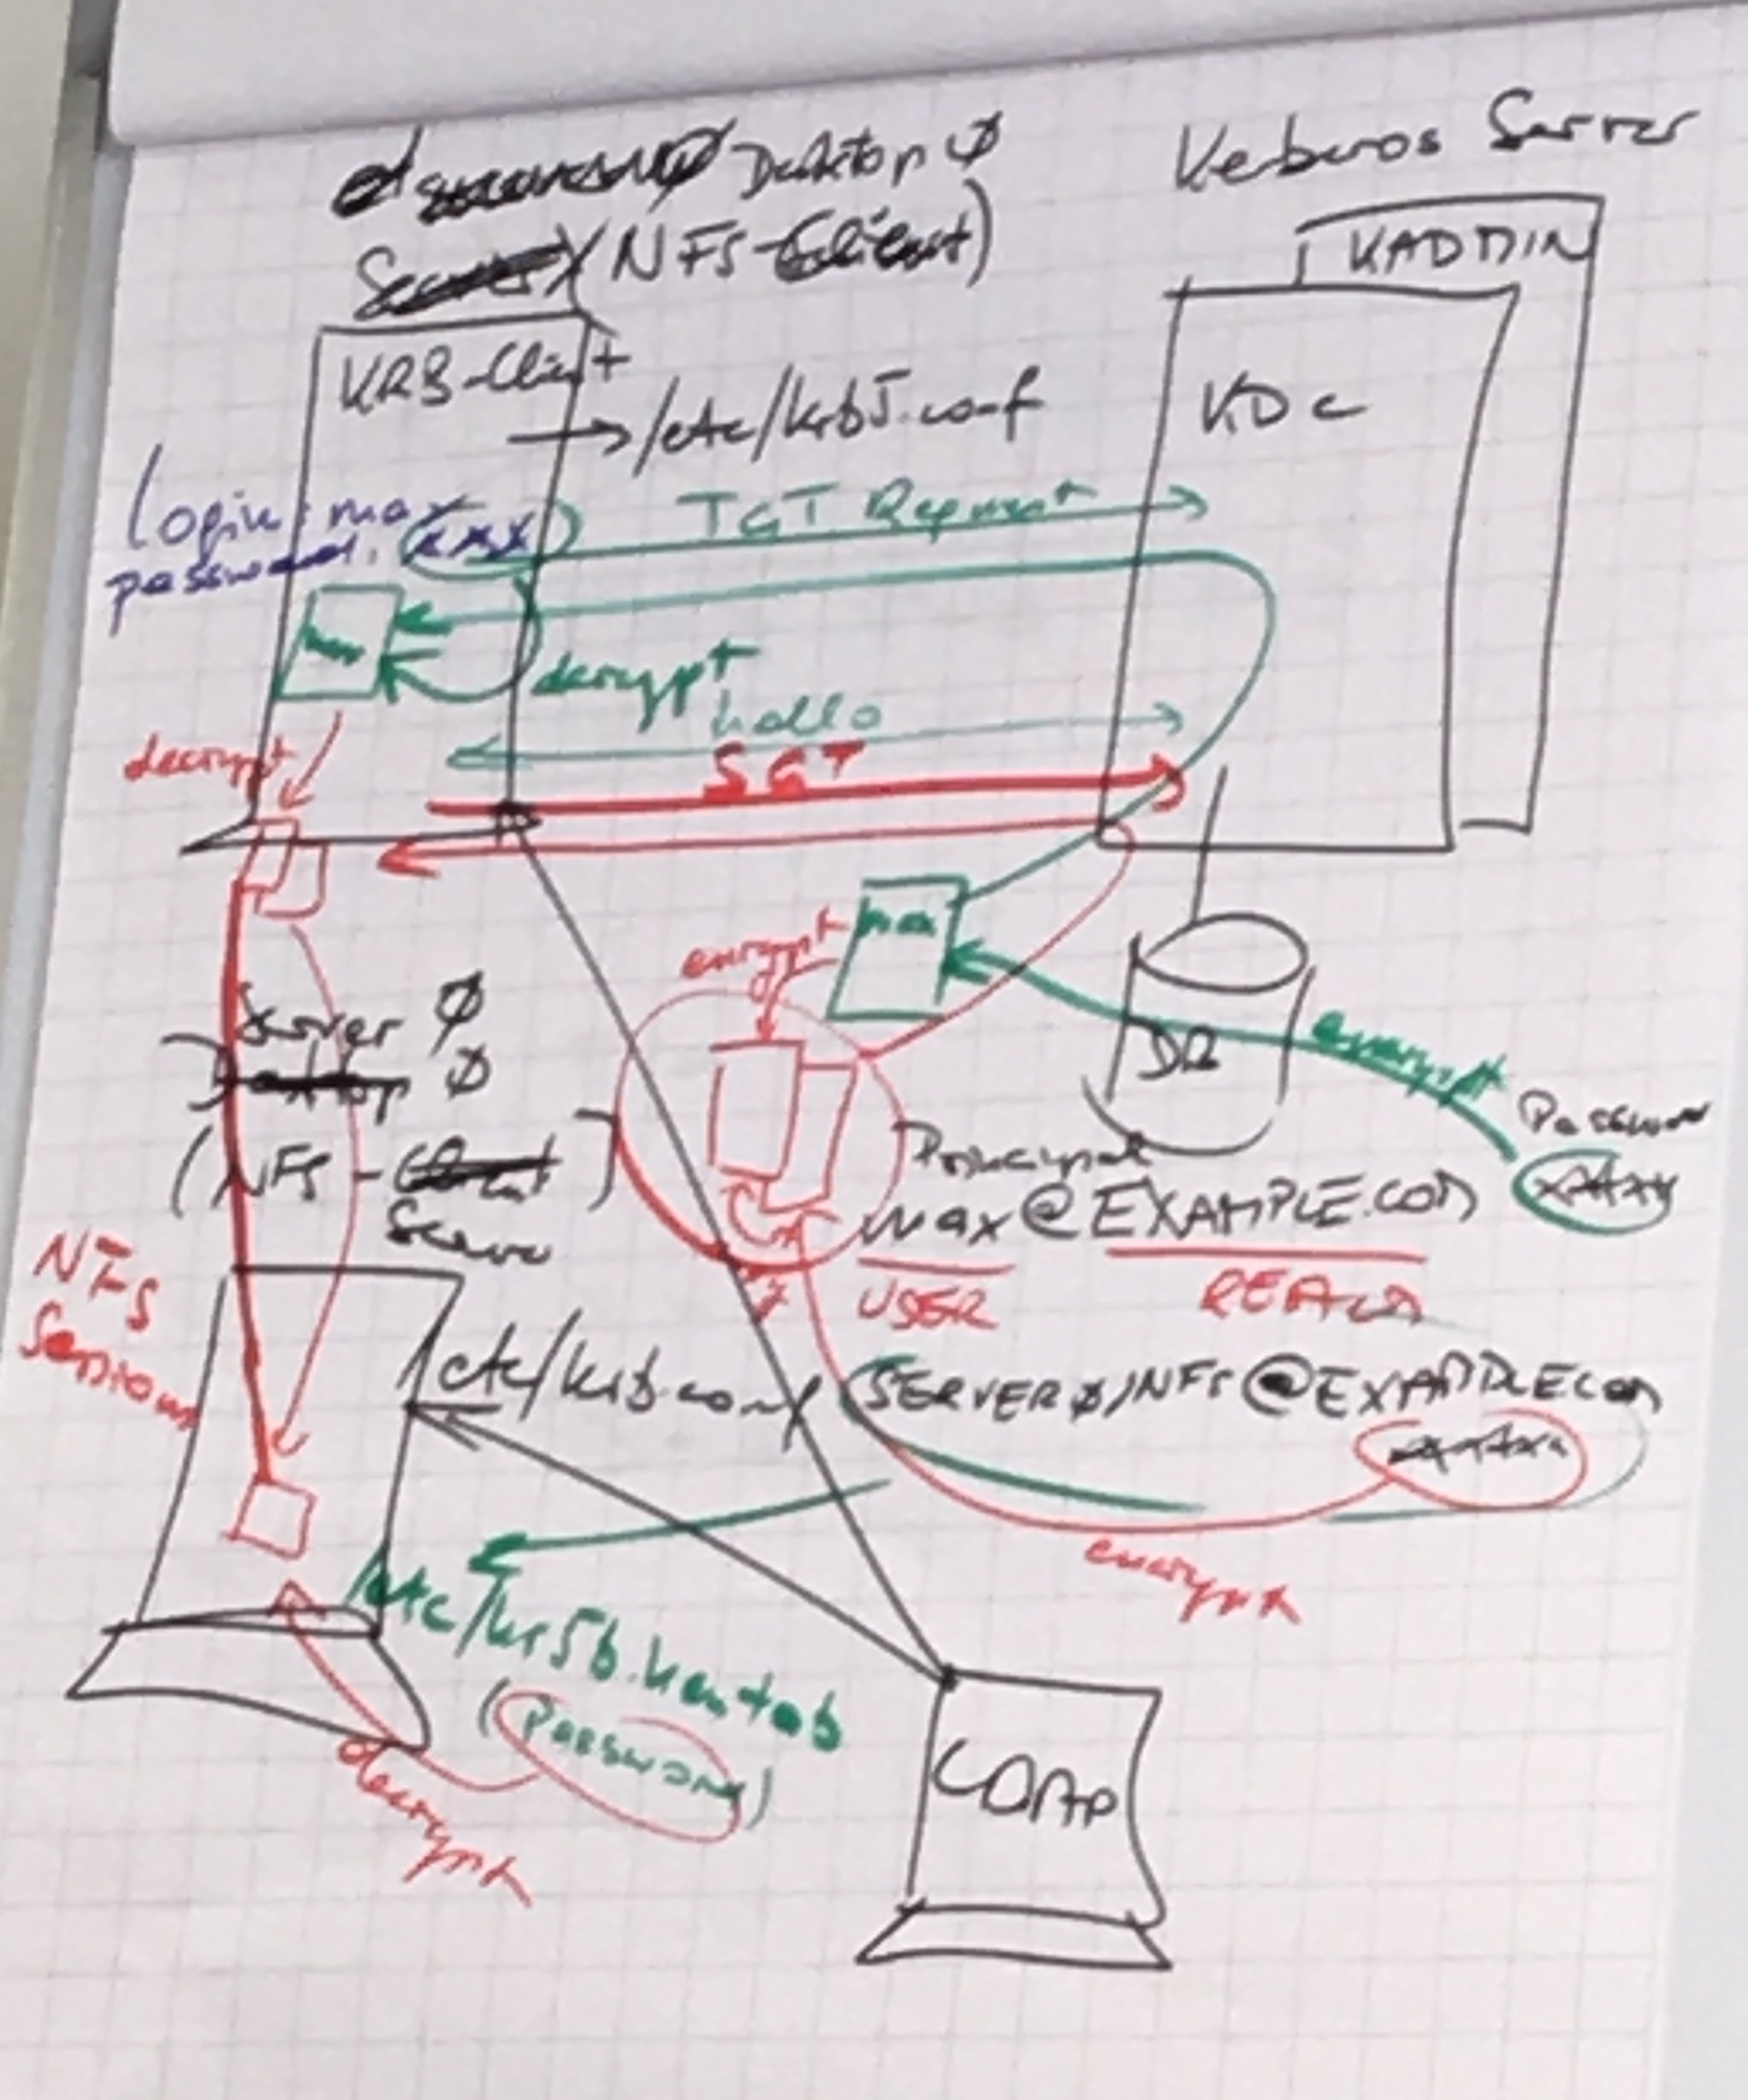 Desktop 0
(NFS-Client)
Kerberos Server
KADMIN
KRB-Client
→/etc/krb5.conf
KDC
Login: max
password: xxx
TGT Request
decrypt
hallo
decrypt
SGT
max
encrypt
Server 0
Desktop 0
(NFS-Client)
Server
DB
encrypt
Password
Principal
max@EXAMPLE.COM
USER
REALM
NFS
Session
/etc/krb.conf
SERVER0/NFS@EXAMPLE.COM
encrypt
/etc/kr5b.keytab
(Password)
decrypt
LDAP